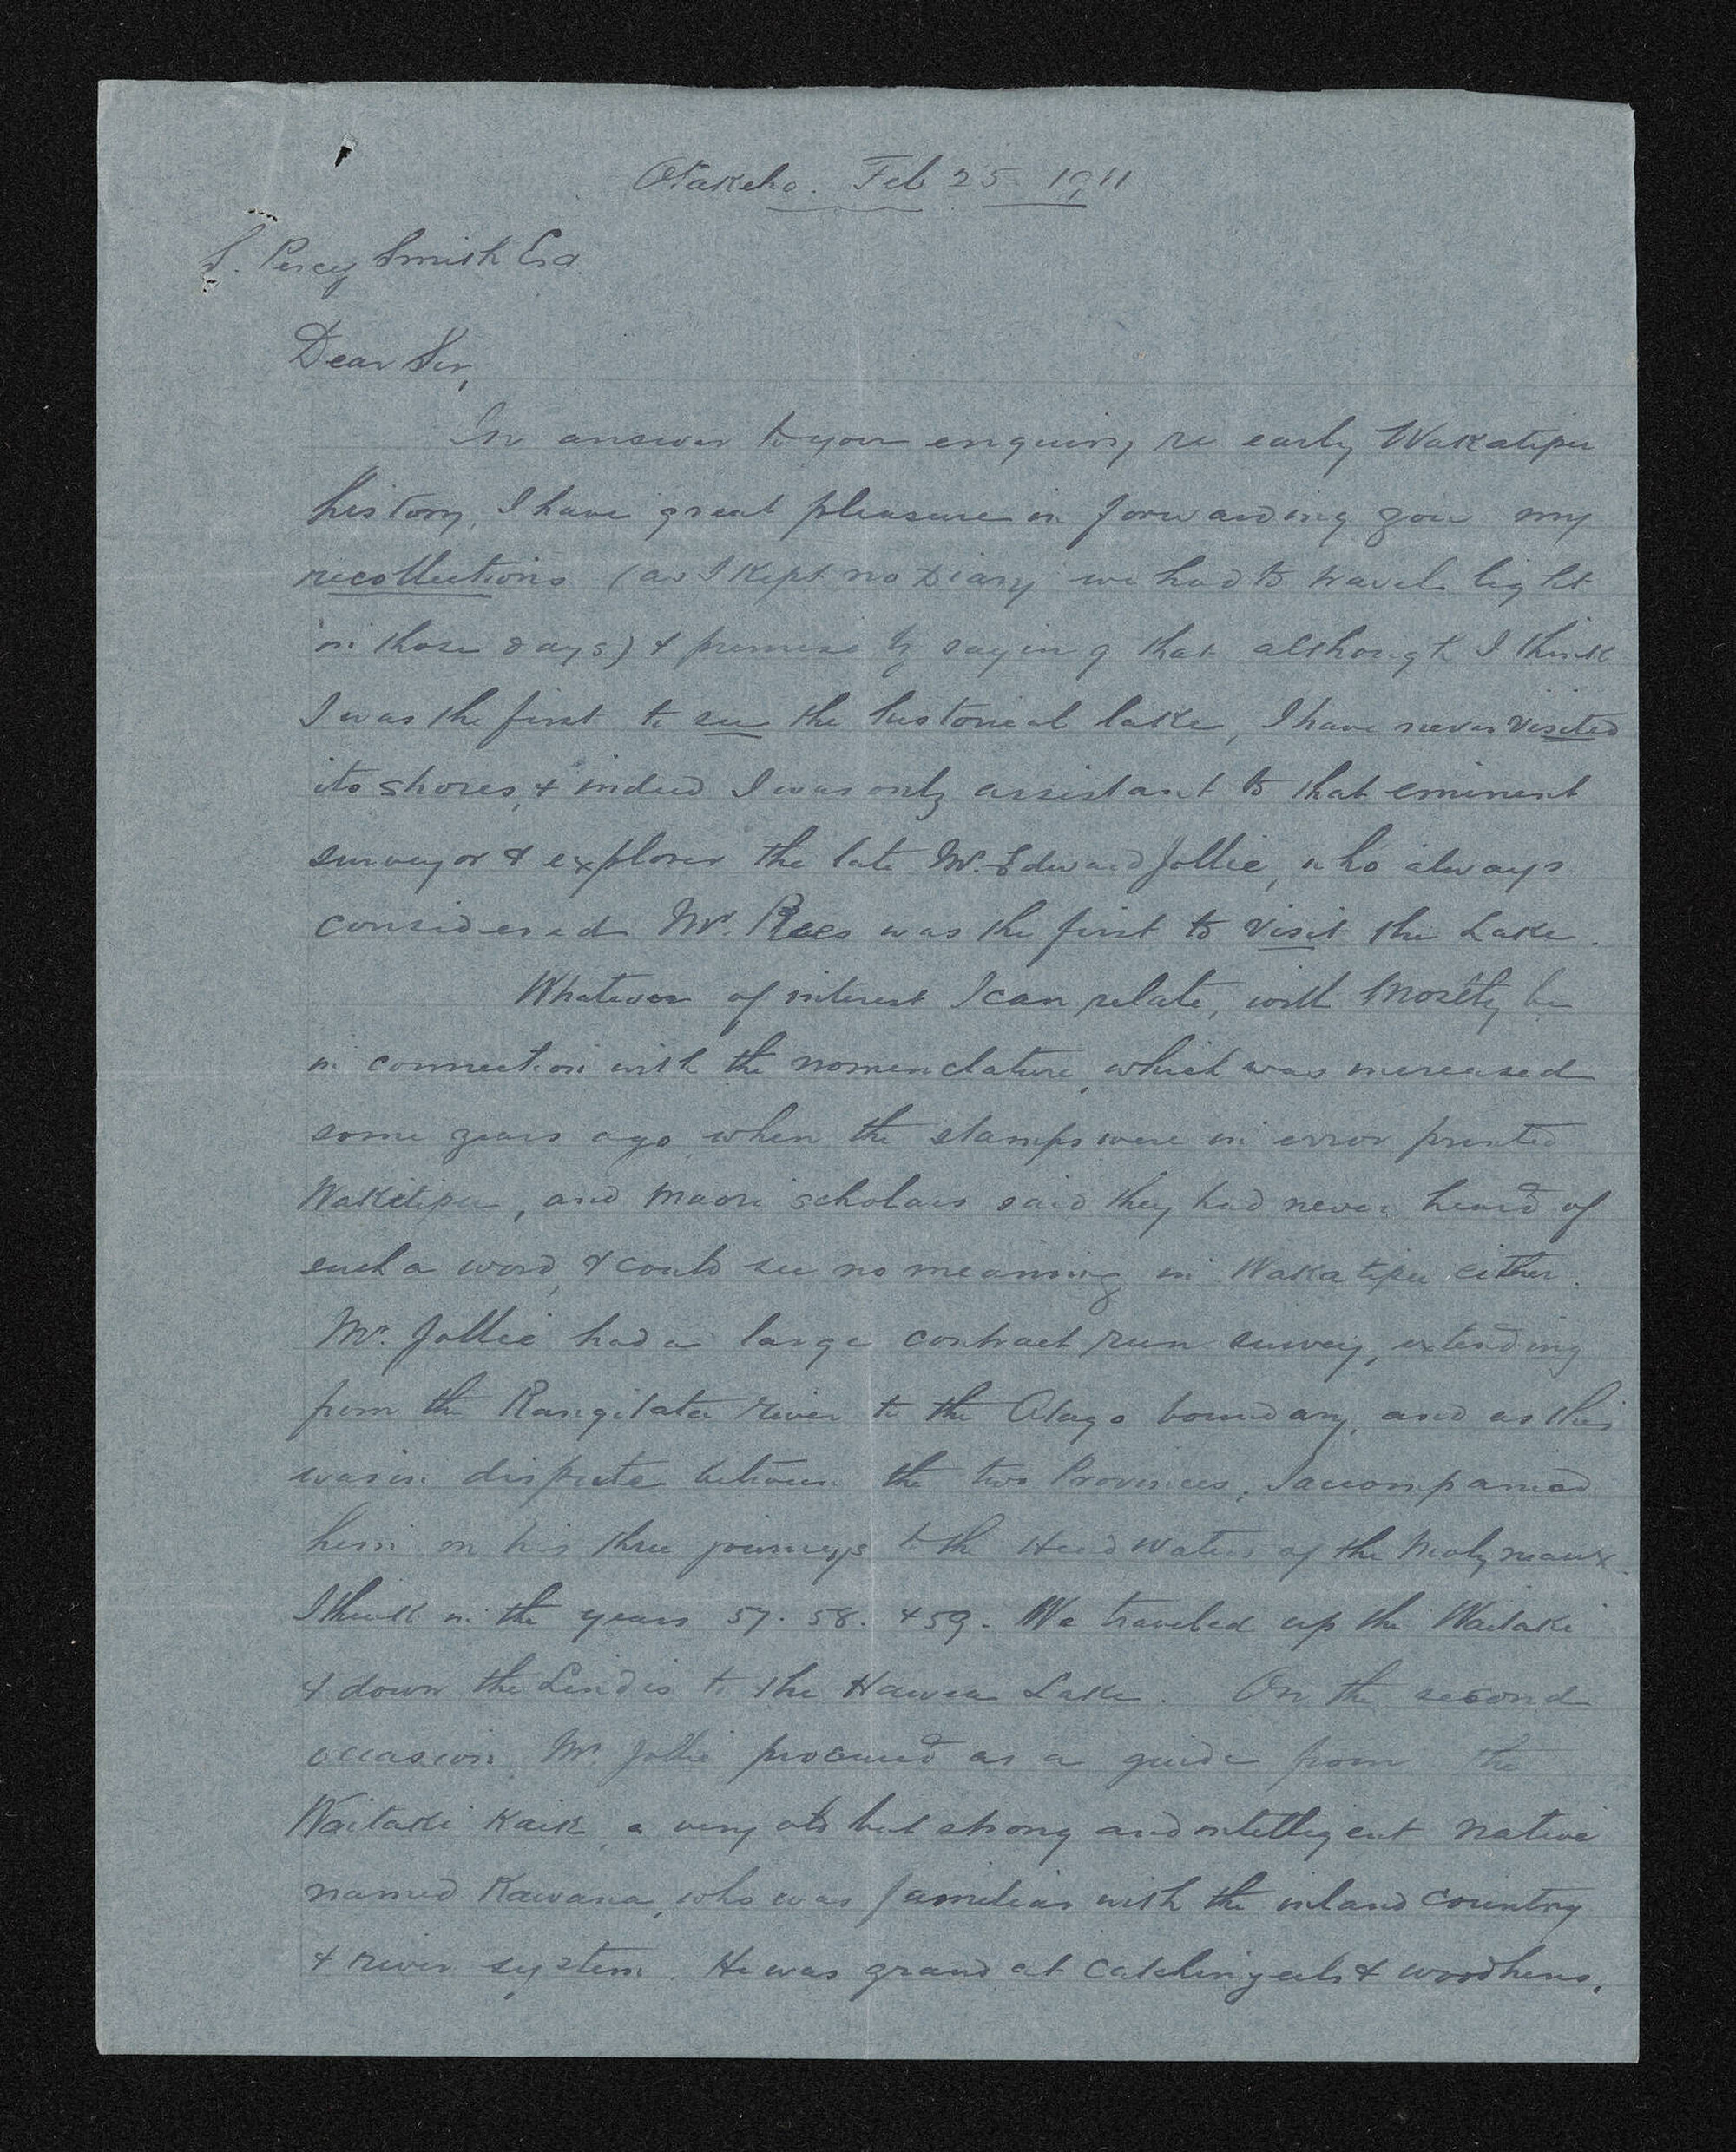 Otakeho. Feb 25 1911
S. Percy Smith Esq.
Dear Sir,
In answer to your enquiry re early Wakatipu
history, I have great pleasure in forwarding you my
recollections (as I kept no Diary we had to travel light
in those days) & premise by saying that although I think
I was the first to see the historical lake, I have never visited
its shores, & indeed I was only assistant to that eminent
surveyor & explorer the late Mr. Edward Jollie, who always
considered Mr. Rees was the first to visit the Lake.
Whatever of interest I can relate, will mostly be
in connection with the nomenclature, which was increased
some years ago when the stamps were in error printed
Wakitipu, and Maori scholars said they had never heard of
such a word, & could see no meaning in Wakatipu either.
Mr. Jollie had a large contract run survey, extending
from the Rangitata river to the Otago boundary, and as this
was in dispute between the two Provinces, I accompanied
him on his three journeys to the Head Waters of the Molyneaux.
I think in the years 57. 58. & 59. We traveled up the Waitaki
& down the Lindis to the Hawea Lake. On the second
occasion Mr Jollie procured as a guide from the
Waitaki Kaik, a very old but strong and intelligent native
named Kawana, who was familiar with the inland country
& river system. He was grand at catching eels & woodhens.